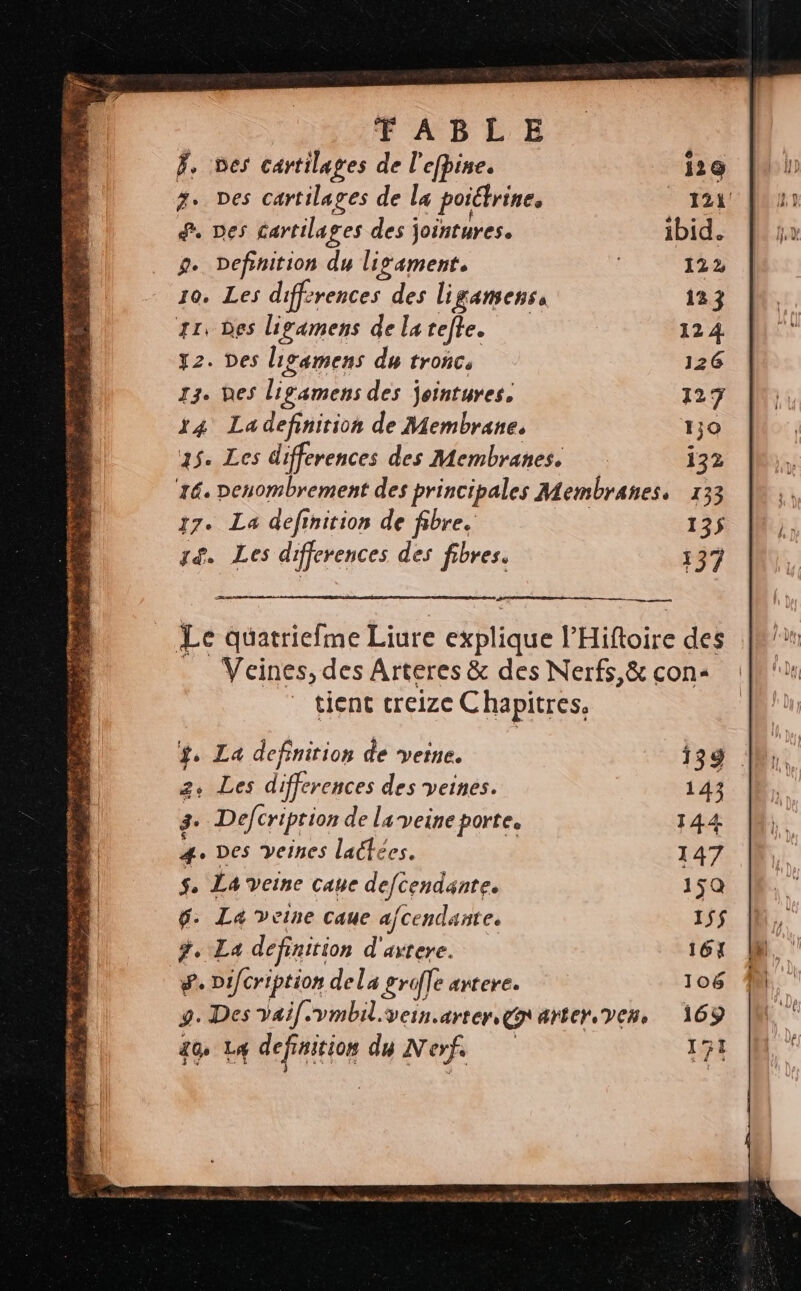 TABLE
6. Des cartilages de l'eſpine. 120
7. Des cartilages de la poictrine. 121
8. Des cartilages des jointures. ibid.
9. Definition du ligament. 122
10. Les differences des ligamens. 123
11. Des ligamens de la teſte. 124
12. Des ligamens du tronc. 126
13. Des ligamens des jointures. 127
14 La definition de Membrane. 130
15. Les differences des Membranes. 132
16. Denombrement des principales Membranes. 133
17. La definition de fibre. 135
18. Les differences des fibres. 137
Le quatrieſme Liure explique l'Hiſtoire des
Veines, des Arteres & des Nerfs, & con-
tient treize Chapitres.
1. La definition de veine. 139
2. Les differences des veines. 143
3. Deſcription de la veine porte. 144
4. Des veines lactées. 147
5. La veine caue deſcendante. 150
6. La veine caue aſcendante. 155
7. La definition d'artere. 161
8. Diſcription de la groſſe artere. 106
9. Des vaiſ. vmbil. vein. arter. & arter. ven. 169
10. La definition du Nerf. 171